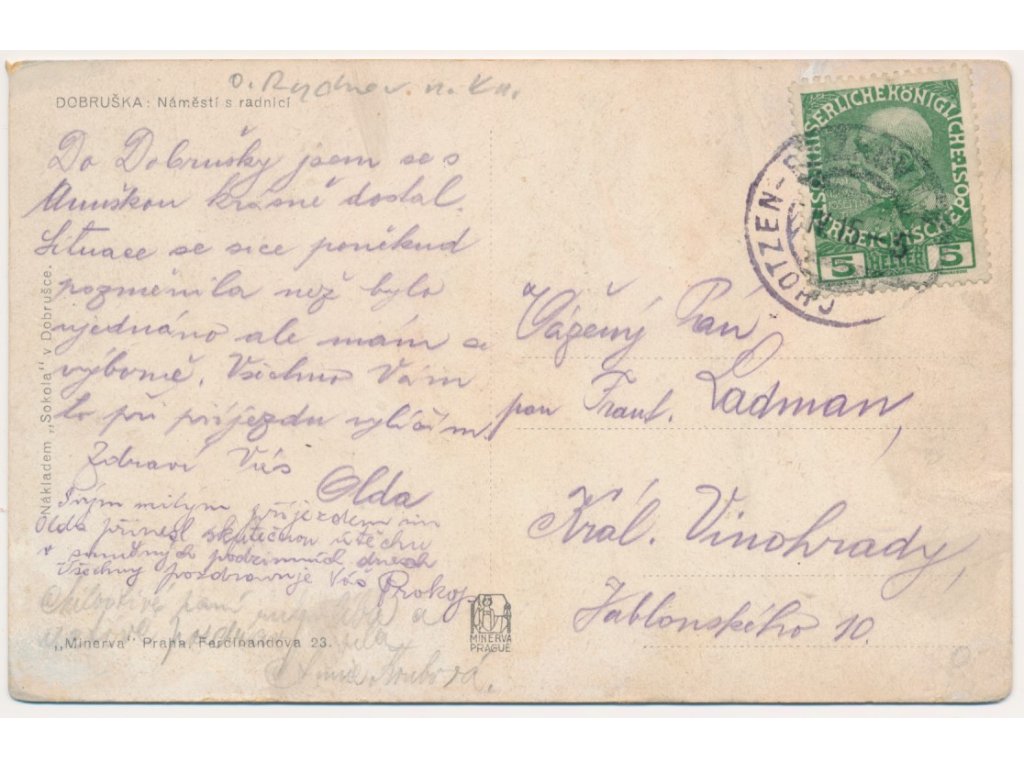 o. Rychnov. n. Kn.
DOBRUŠKA: Náměstí s radnicí
Do Dobrušky jsem se s
krásně dostal.
Situace se sice poněkud
pozměnila než bylo
ujednáno ale mám se
výborně. Všechno Vám
to při příjezdu vylíčím.
Zdraví Vás
Olda
Svým milým příjezdem
Olda přinesl skutečnou útěchu
v smutných podzimních dnech
Všechny pozdravuje Váš Prokop.
paní a
Nákladem „Sokola" v Dobrušce.
„Minerva" Praha, Ferdinandova 23.
MINERVA
PRAGUE
KAISERLICHE KÖNIGLICHE
POST
5 HELLER 5
CHOTZEN
Vážený Pan
pan Frant. Ladman,
Král. Vinohrady,
Jablonského 10.